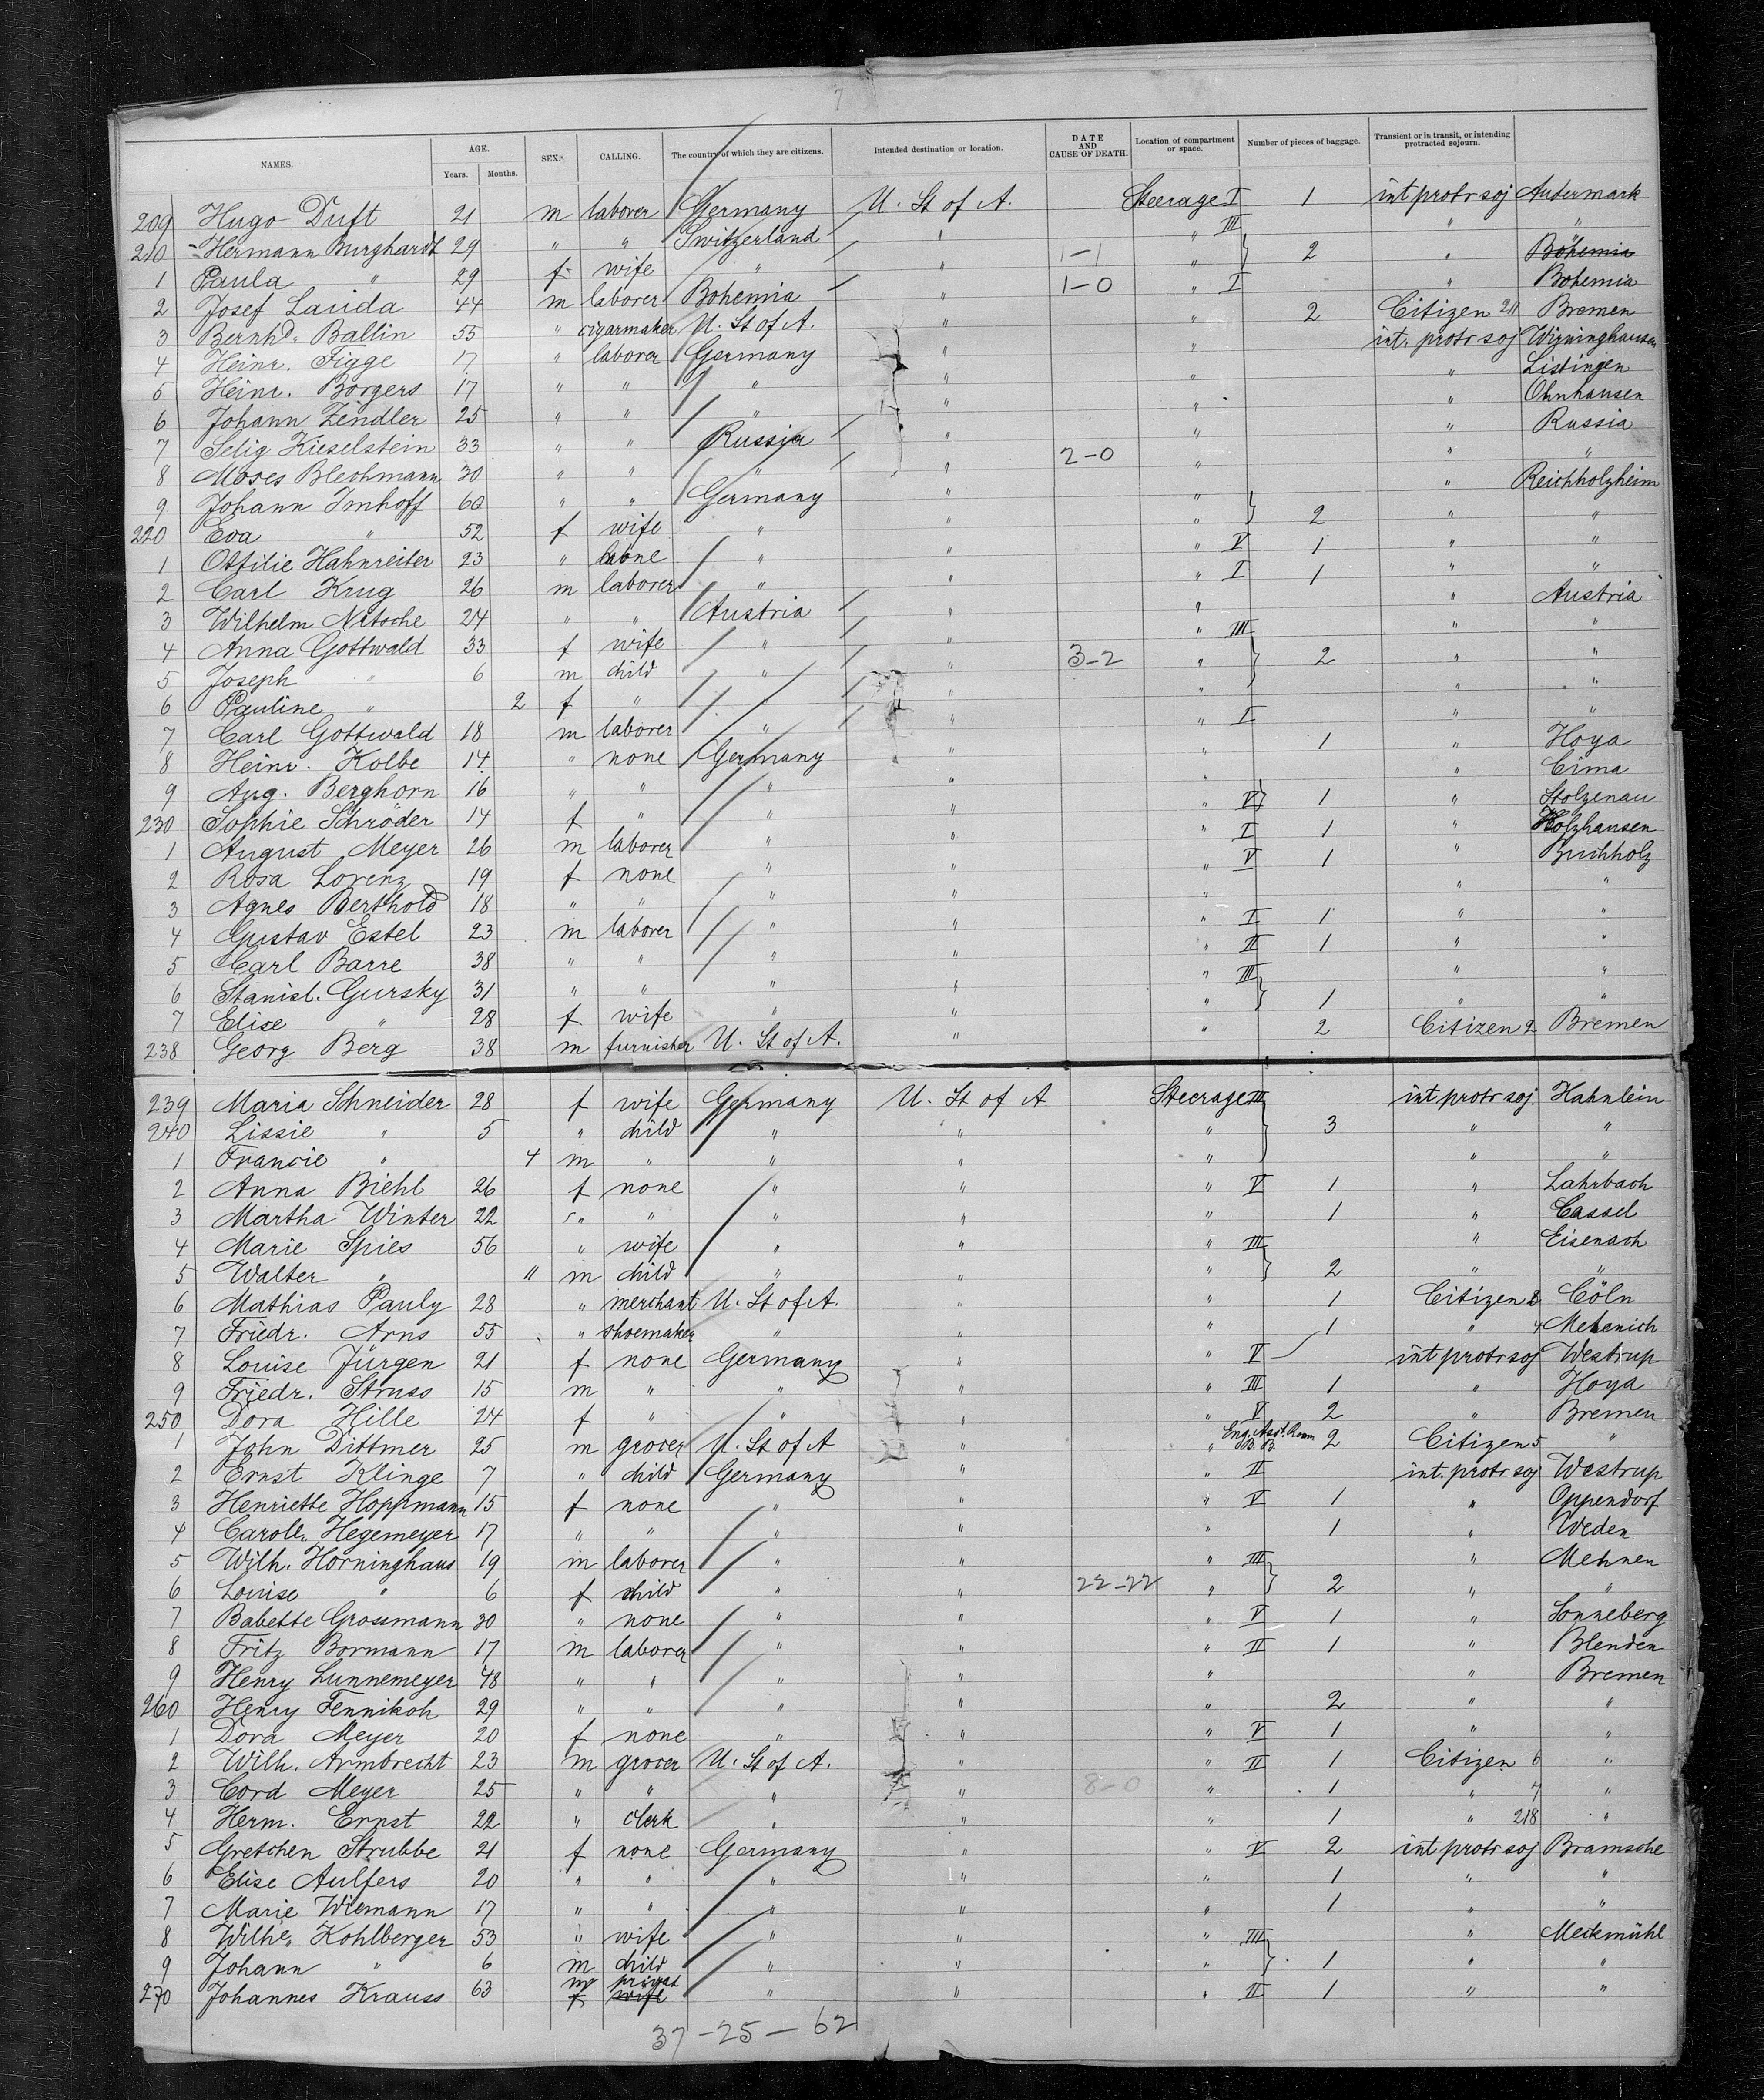 7
NAMES. AGE. Years. Months. SEX. CALLING. The country of which they are citizens. Intended destination or location. DATE AND CAUSE OF DEATH. Location of compartment or space. Number of pieces of baggage. Transient or in transit, or intending protracted sojourn.
209 Hugo Duft 21 m laborer Germany U. St of A. Steerage I 1 int protr soj Andermark
210 Hermann Burghardt 29 " " Switzerland " " III " "
1 Paula " 29 f wife " " 1-1 " 2 " Böhemia
2 Josef Lauda 44 m laborer Bohemia " 1-0 " I " Bohemia
3 Bernhd. Ballin 55 " cigarmaker U. St of A. " " 2 Citizen 211 Bremen
4 Heinr. Figge 17 " laborer Germany " " int. protr soj Wirninghausen
5 Heinr. Börgers 17 " " " " " " Listingen
6 Johann Zindler 25 " " " " " " Ohnhausen
7 Selig Kieselstein 33 " " Russia " " " Russia
8 Moses Blechmann 30 " " " " 2-0 " " "
9 Johann Imhoff 60 " " Germany " " " Reichholzheim
220 Eva " 52 f wife " " " 2 " "
1 Ottilie Hahnreiter 23 " none " " " V 1 " "
2 Carl Krug 26 m laborer " " " I 1 " "
3 Wilhelm Nitsche 24 " " Austria " " " Austria
4 Anna Gottwald 33 f wife " " " III " "
5 Joseph " 6 m child " " 3-2 " 2 " "
6 Pauline " 2 f " " " " " "
7 Carl Gottwald 18 m laborer " " " I " "
8 Heinr. Kolbe 14 " none Germany " " 1 " Hoya
9 Aug. Berghorn 16 " " " " " " Cima
230 Sophie Schröder 14 f " " " " V 1 " Stolzenau
1 August Meyer 26 m laborer " " " I 1 " Holzhausen
2 Rosa Lorenz 19 f none " " " V 1 " Buchholz
3 Agnes Berthold 18 " " " " " " "
4 Gustav Estel 23 m laborer " " " I 1 " "
5 Carl Barre 38 " " " " " II 1 " "
6 Stanisl. Gursky 31 " " " " " III " "
7 Elise " 28 f wife " " " 1 " "
238 Georg Berg 38 m furnisher U. St of A. " " 2 Citizen 2 Bremen
239 Maria Schneider 28 f wife Germany U. St of A Steerage III int protr soj. Hahnlein
240 Lissie " 5 " child " " " 3 " "
1 Francie " 4 m " " " " " "
2 Anna Biehl 26 f none " " " V 1 " Lahrbach
3 Martha Winter 22 " " " " " 1 " Cassel
4 Marie Spies 56 " wife " " " III " Eisenach
5 Walter " 11 m child " " " 2 " "
6 Mathias Pauly 28 " merchant U. St of A. " " 1 Citizen Cöln
7 Friedr. Arns 55 " shoemaker " " " 1 " 4 Mehenich
8 Louise Jürgen 21 f none Germany " " V int protr soj Westrup
9 Friedr. Struss 15 m " " " " III 1 " Hoya
250 Dora Hille 24 f " " " " V 2 " Bremen
1 John Dittmer 25 m grocer U. St of A " " Eng. Asst. Room B. B. 2 Citizen 5 "
2 Ernst Klinge 7 " child Germany " " II int. protr soj Westrup
3 Henriette Hoppmann 15 f none " " " V 1 " Oppendorf
4 Carole. Hegemeyer 17 " " " " " 1 " Weden
5 Wilh. Horninghaus 19 m laborer " " " III " Mehnen
6 Louise " 6 f child " " 22-22 " 2 " "
7 Babette Grossmann 30 " none " " " V 1 " Sonneberg
8 Fritz Bormann 17 m laborer " " " II 1 " Blenden
9 Henry Lunnemeyer 48 " " " " " " Bremen
260 Henry Fennikoh 29 " " " " " 2 " "
1 Dora Meyer 20 f none " " " V 1 " "
2 Wilh. Armbrecht 23 m grocer U. St of A. " " II 1 Citizen 6 "
3 Cord Meyer 25 " " " " 8-0 " 1 " 7 "
4 Herm. Ernst 22 " clerk " " " 1 " 218 "
5 Gretchen Strubbe 21 f none Germany " " V 2 int protr soj Bramsche
6 Elise Aulfers 20 " " " " " 1 " "
7 Marie Wiemann 17 " " " " " 1 " "
8 Wilhe. Kohlberger 53 " wife " " " III " Meckmühl
9 Johann " 6 m child " " " 1 " "
270 Johannes Krauss 63 m f privat wife " " " II 1 " "
37-25-62